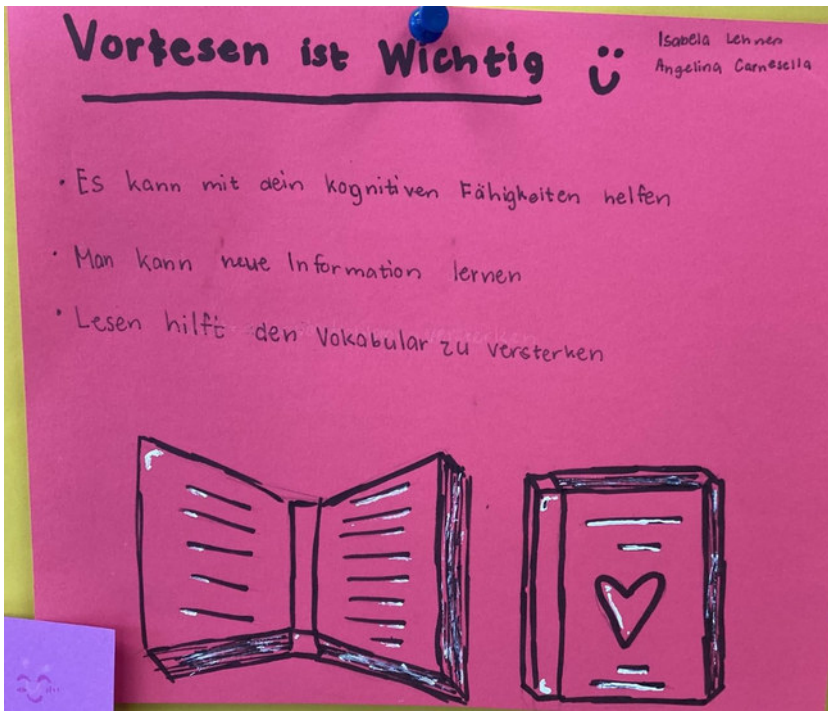 Vorlesen ist Wichtig
Isabela Lehnen
Angelina Carnesella
• Es kann mit dein kognitiven Fähigkeiten helfen
• Man kann neue Information lernen
• Lesen hilft den Vokabular zu versterken